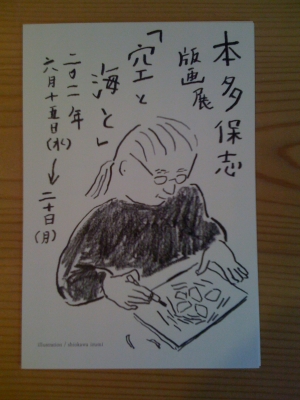 本多保志
版画展
「空と
海と」
二〇一一年
六月十五日(水)
→二十日(月)
illustration /